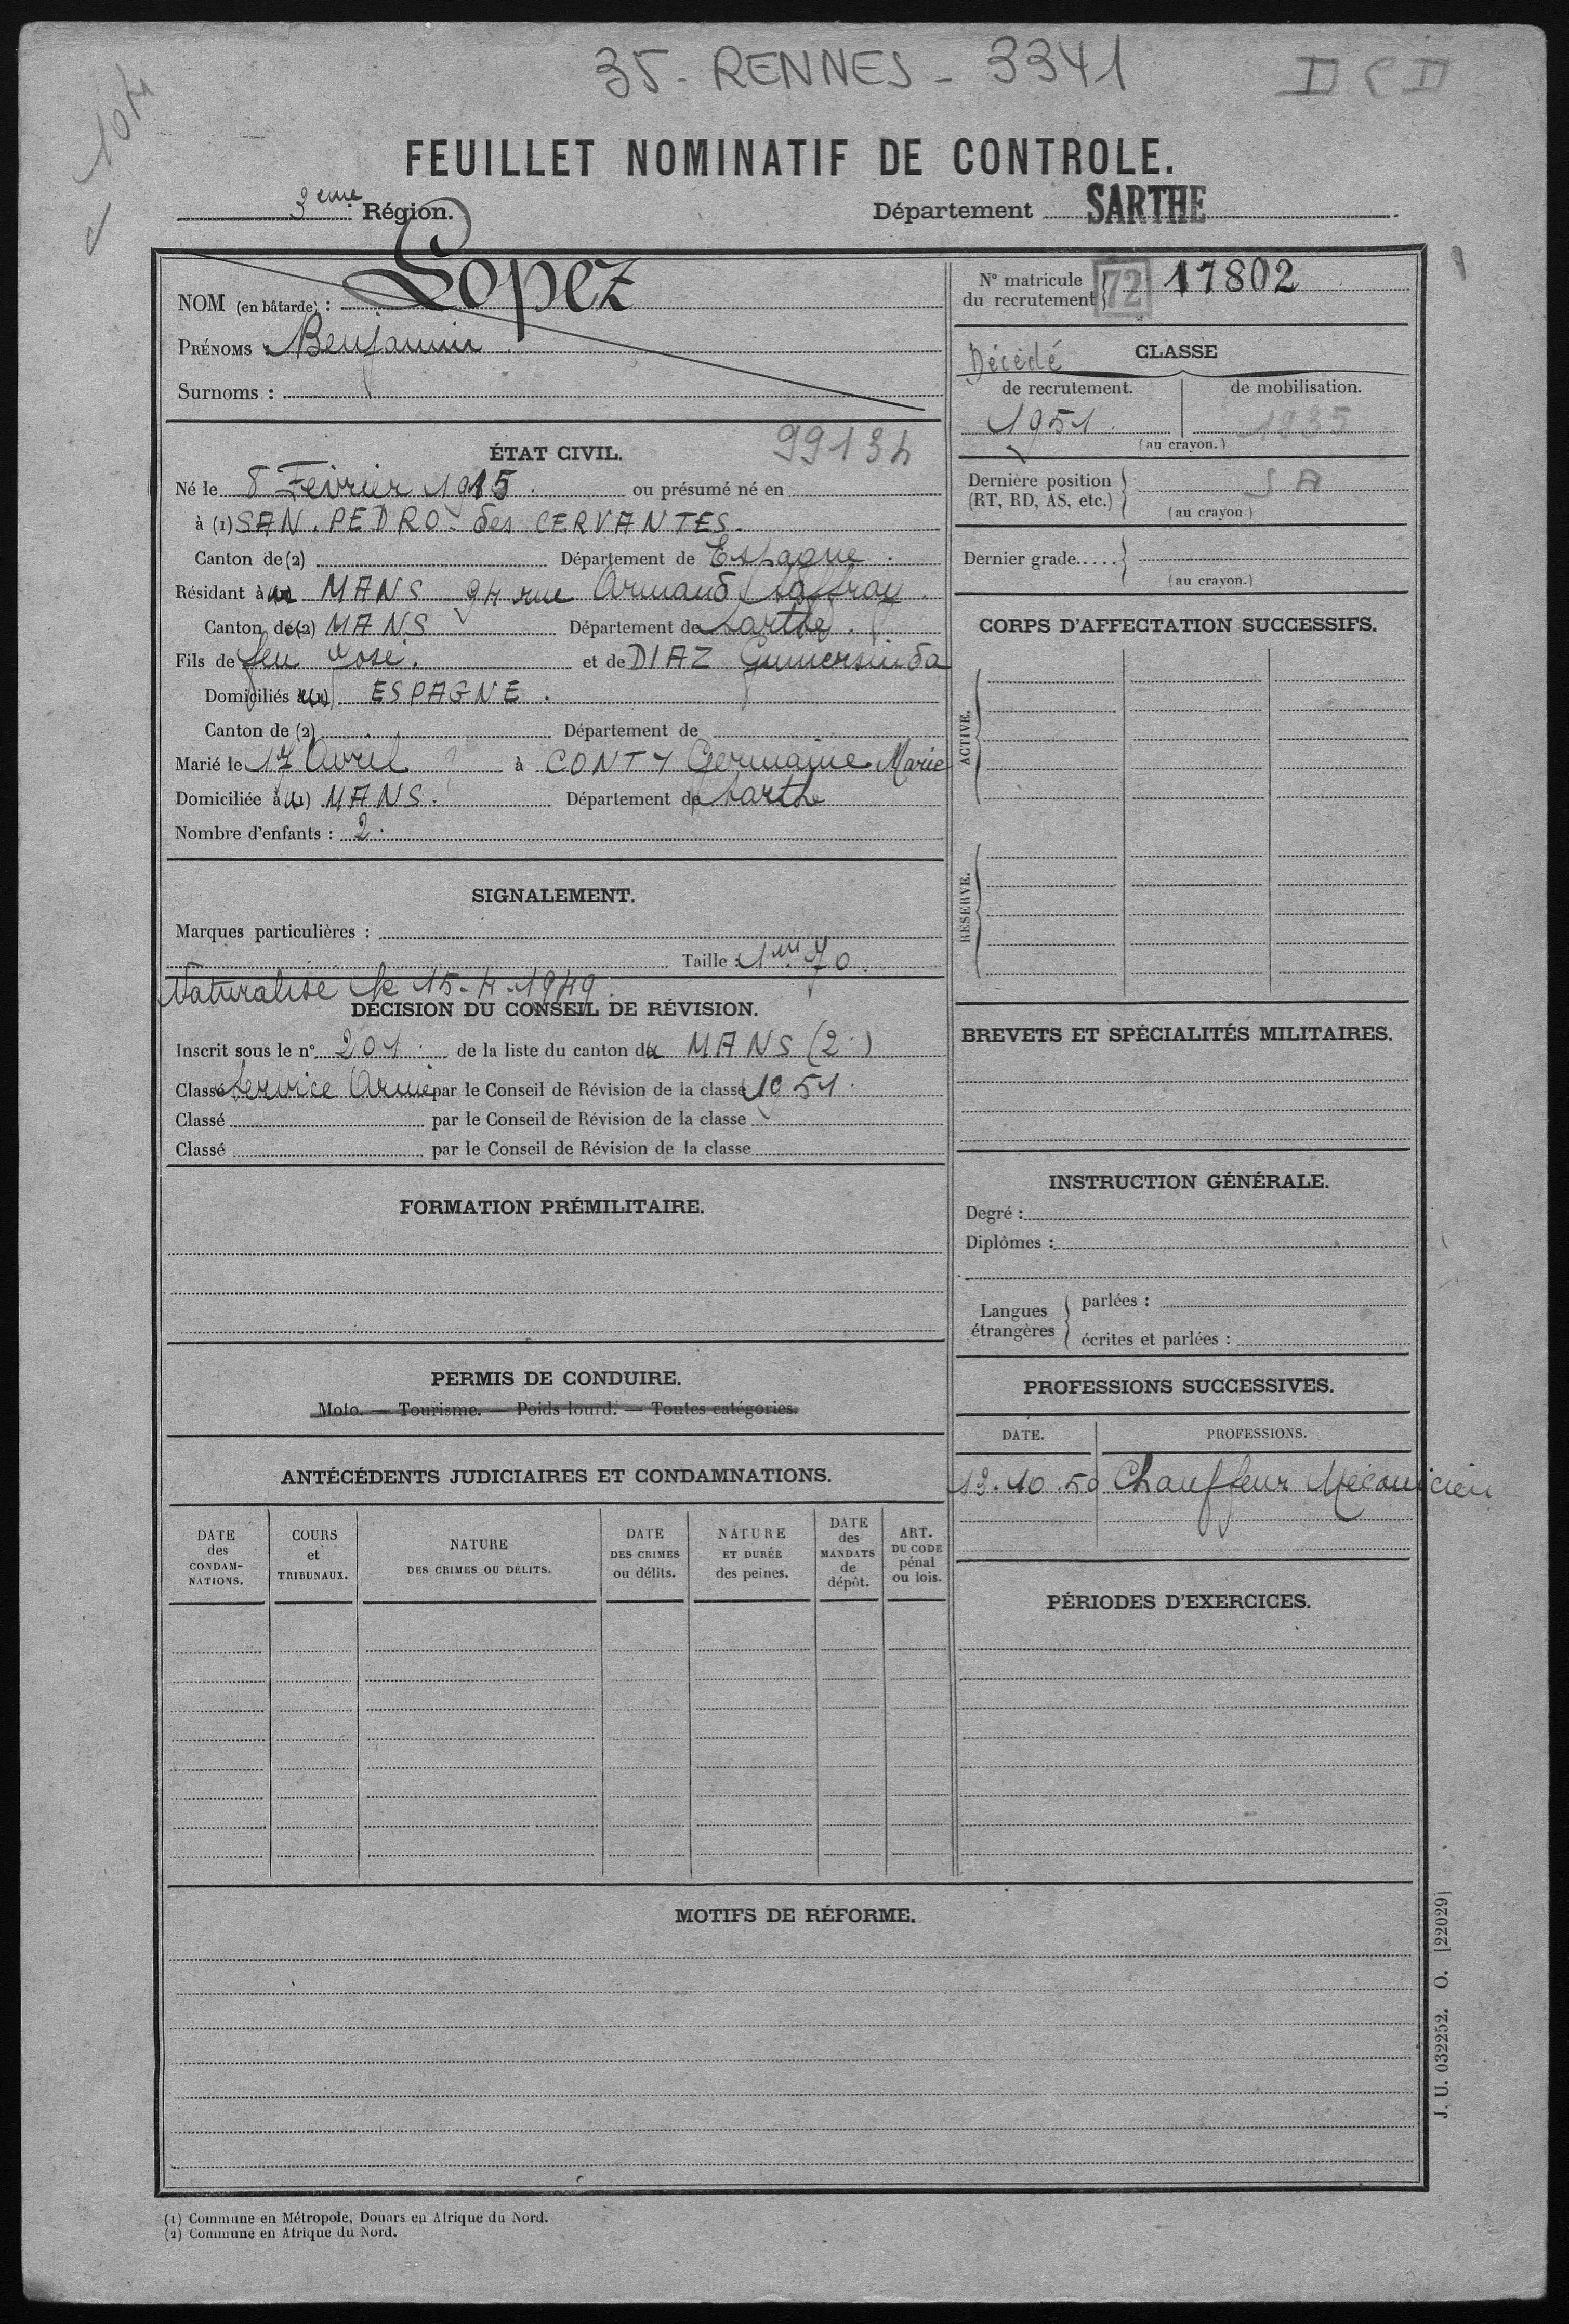 35 - RENNES - 3341
DCD
FEUILLET NOMINATIF DE CONTROLE.
3eme Région.
Département SARTHE
NOM (en bâtarde) : Lopez
PRÉNOMS : Benjamin
Surnoms :
ÉTAT CIVIL.
99134
Né le 8 Février 1915 ou présumé né en
à (1) SAN. PEDRO. des CERVANTES.
Canton de (2) Département de Espagne.
Résidant à MANS 94 rue Armand Saffray.
Canton de (2) MANS Département de Sarthe.
Fils de feu José. et de DIAZ Gumersinda
Domiciliés à ESPAGNE.
Canton de (2) Département de
Marié le 17 Avril à CONTY Germaine Marie
Domiciliée à MANS. Département de Sarthe
Nombre d'enfants : 2.
SIGNALEMENT.
Marques particulières :
Taille : 1m 70.
Naturalisé le 15-4-1949.
DÉCISION DU CONSEIL DE RÉVISION.
Inscrit sous le n° 201. de la liste du canton du MANS (2.)
Classé Service Armé par le Conseil de Révision de la classe 1951.
Classé par le Conseil de Révision de la classe
Classé par le Conseil de Révision de la classe
FORMATION PRÉMILITAIRE.
PERMIS DE CONDUIRE.
Moto. — Tourisme. — Poids lourd. — Toutes catégories.
ANTÉCÉDENTS JUDICIAIRES ET CONDAMNATIONS.
DATE des CONDAM-NATIONS.
COURS et TRIBUNAUX.
NATURE DES CRIMES OU DÉLITS.
DATE DES CRIMES ou délits.
NATURE ET DURÉE des peines.
DATE des MANDATS de dépôt.
ART. DU CODE pénal ou lois.
N° matricule du recrutement 72 17802
Décédé
CLASSE
de recrutement. de mobilisation.
1951. 1935
(au crayon.)
Dernière position (RT, RD, AS, etc.) SA
(au crayon.)
Dernier grade.....
(au crayon.)
CORPS D'AFFECTATION SUCCESSIFS.
ACTIVE.
RÉSERVE.
BREVETS ET SPÉCIALITÉS MILITAIRES.
INSTRUCTION GÉNÉRALE.
Degré :
Diplômes :
Langues étrangères
parlées :
écrites et parlées :
PROFESSIONS SUCCESSIVES.
DATE. PROFESSIONS.
13.10.50 Chauffeur Mécanicien
PÉRIODES D'EXERCICES.
MOTIFS DE RÉFORME.
J. U. 032252. O. [22029]
(1) Commune en Métropole, Douars en Afrique du Nord.
(2) Commune en Afrique du Nord.